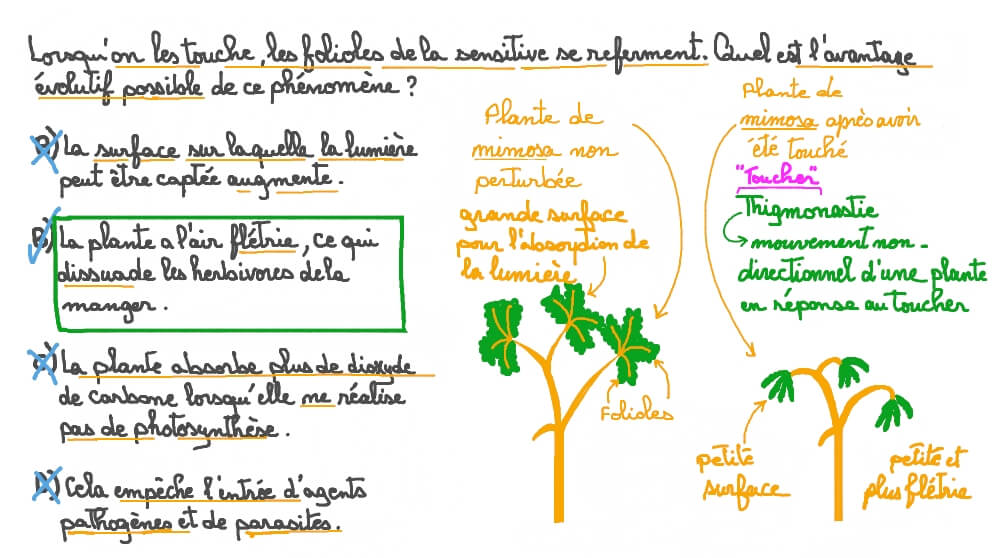 Lorsqu'on les touche, les folioles de la sensitive se referment. Quel est l'avantage
évolutif possible de ce phénomène ?
A) La surface sur laquelle la lumière
peut être captée augmente.
B) La plante a l'air flétrie, ce qui
dissuade les herbivores de la
manger.
C) La plante absorbe plus de dioxyde
de carbone lorsqu'elle ne réalise
pas de photosynthèse.
D) Cela empêche l'entrée d'agents
pathogènes et de parasites.
Plante de
mimosa non
perturbée
grande surface
pour l'absorption de
la lumière
Folioles
Plante de
mimosa après avoir
été touché
"Toucher"
Thigmonastie
mouvement non-
directionnel d'une plante
en réponse au toucher
petite
surface
petite et
plus flétrie